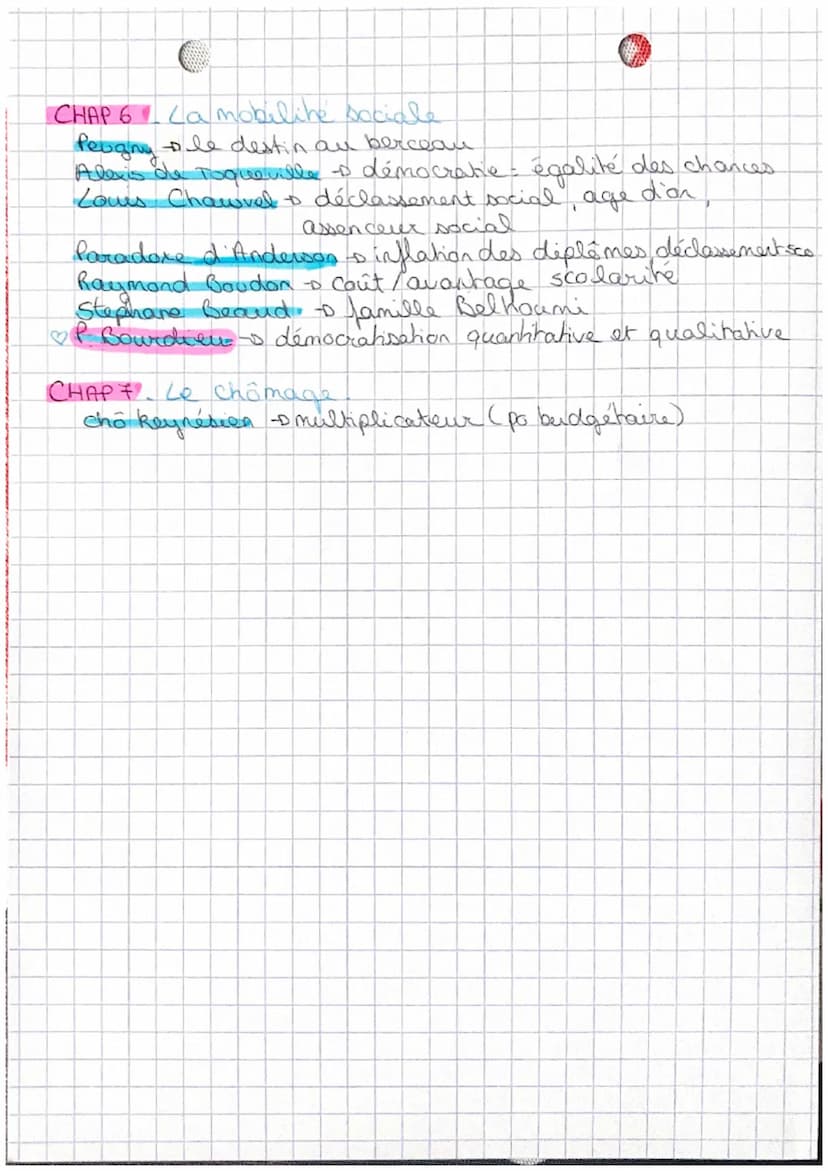 CHAP 6. La mobilité sociale
Peugny → le destin au berceau
Alexis de Toqueville → démocratie = égalité des chances
Louis Chauvel → déclassement social, age d'or,
assenceur social
Paradoxe d'Anderson → inflation des diplômes, déclassement sco
Raymond Boudon → coût/avantage scolarité
Stephane Beaud → famille Belhoumi
♡ P. Bourdieu → démocratisation quantitative et qualitative
CHAP 7. Le chômage.
chô keynésien → multiplicateur (po budgétaire)